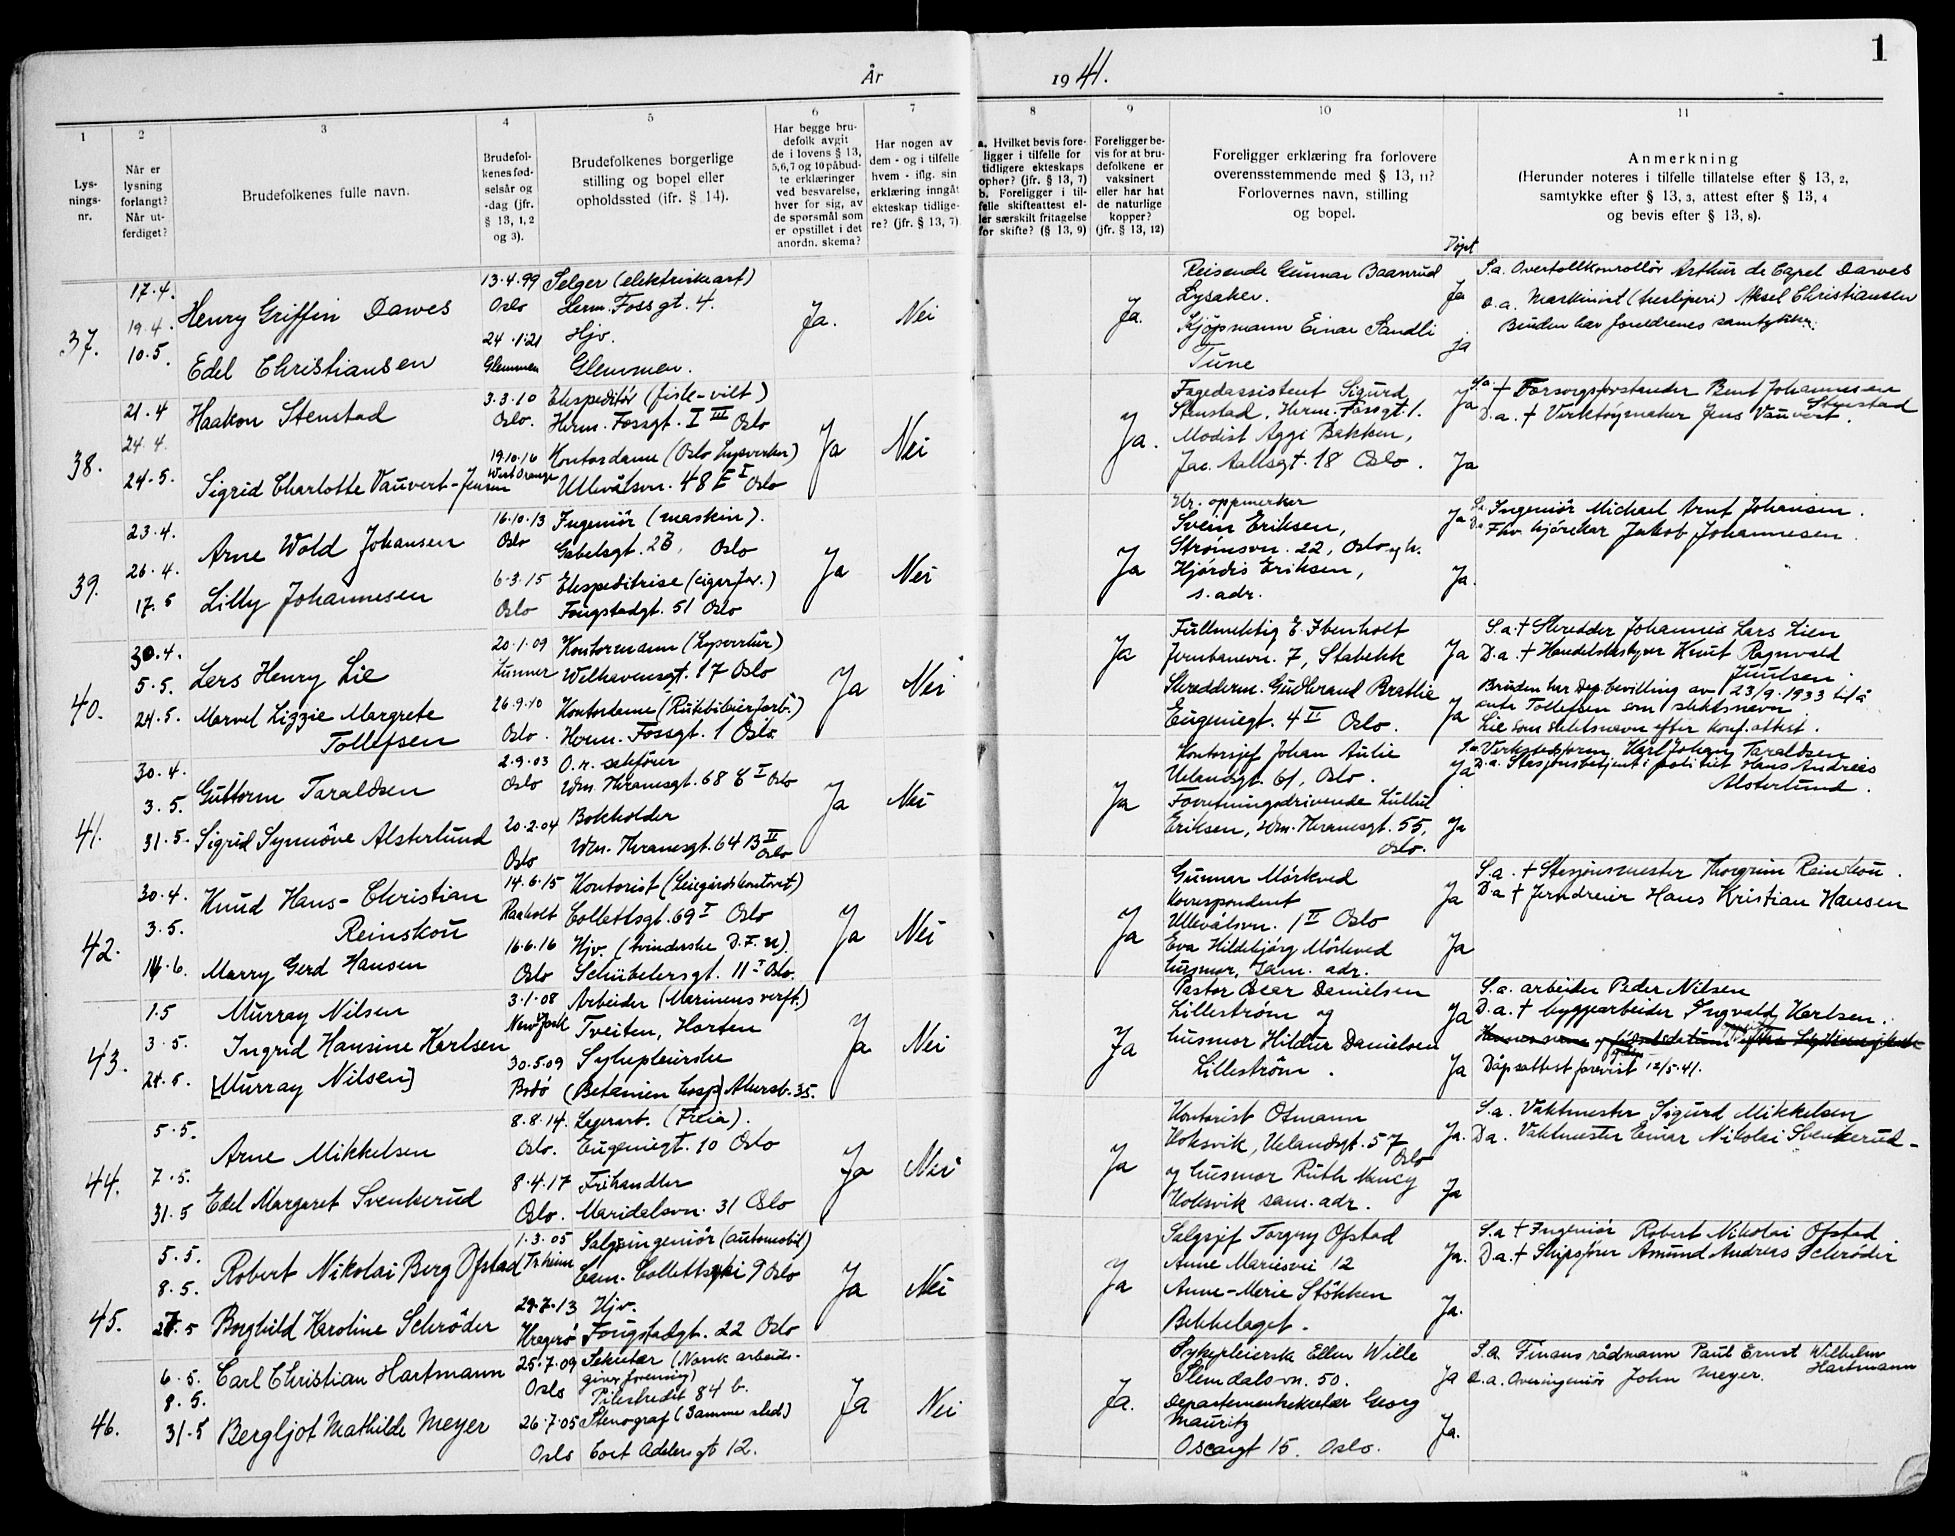 År
1941.
1
1
2
3
4
5
6
7
8
9
10
11
Lys-
nings-
nr.
Når er
lysning
forlangt?
Når ut-
ferdiget?
Brudefolkenes fulle navn.
Brudefol-
kenes fød-
selsår og
-dag (jfr.
§ 13, 1, 2
og 3).
Brudefolkenes borgerlige
stilling og bopel eller
opholdssted (ifr. § 14).
Har begge bru-
defolk avgit
de i lovens § 13,
5,6,7 og 10 påbud-
te erklæringer
ved besvarelse,
hver for sig, av
de spørsmål som
er opstillet i det
anordn. skema?
Har nogen av
dem - og i tilfelle
hvem - iflg. sin
erklæring inngåt
ekteskap tidlige-
re? (jfr. § 13, 7)
a. Hvilket bevis fore-
ligger i tilfelle for
tidligere ekteskaps
ophør? (jfr. § 13, 7)
b. Foreligger i til-
felle skifteattest el-
ler særskilt fritagelse
for skifte? (§ 13, 9)
Foreligger be-
vis for at bru-
defolkene er
vaksinert
eller har hat
de naturlige
kopper?
(jfr. § 13, 12)
Foreligger erklæring fra forlovere
overensstemmende med § 13, 11?
Forlovernes navn, stilling
og bopel.
Anmerkning
(Herunder noteres i tilfelle tillatelse efter § 13, 2,
samtykke efter § 13, 3, attest efter § 13, 4
og bevis efter § 13, 8).
Døpt
37.
17.4.
19.4.
10.5.
Henry Griffin Dawes
Edel Christiansen
13.4.99
Oslo
24.1.21
Glemmen
Selger (elektriske art)
Herm. Foss gt. 4.
Hjv.
Glemmen.
Ja.
Nei
Ja.
Reisende Gunnar Baanrud
Lysaker.
Kjøpmann Einar Sandli
Tune
Ja
ja
S.a. Overtollkonrollør Arthur de Capel Dawes
D.a. Maskinist (tresliperi) Aksel Christiansen
Bruden har foreldrenes samtykke.
38.
21.4
24.4.
24.5.
Haakon Stenstad
Sigrid Charlotte Vauvert-Jensen
3.3.10
Oslo.
19.10.16
West Orange
Ekspeditør (fisk-vilt)
Herm. Fossgt. I III Oslo
Kontordame (Oslo Lysverker)
Ullevålsvn. 48 E I Oslo
Ja
Nei
Ja.
Fagedassistent Sigurd
Stenstad, Herm. Fossgt. 1.
Modist Aggi Bakken,
Jac. Aallsgt. 18 Oslo.
Ja
Ja
S.a. † Forsorgsforstander Bent Johannesen
Stenstad
D.a. † Verktøymaker Jens Vauvert.
39.
23.4.
26.4.
17.5
Arne Wold Johansen
Lilly Johannesen
16.10.13
Oslo
6.3.15
Oslo
Ingeniør (maskin).
Gabelsgt. 2B, Oslo
Ekspeditrise (cigarforr.)
Fougstadgt. 51 Oslo
Ja
Nei
Ja
Ur. oppmerker
Svein Eriksen,
Strømsvn. 22, Oslo og h.
Hjørdis Eriksen,
s. adr.
Ja
Ja.
S.a. Ingeniør Michael Arnt Johansen.
D.a. Fhv. hjørekar Jakob Johannesen.
40.
30.4.
5.5.
24.5.
Lars Henry Lie
Marvel Lizzie Margrete
Tollefsen
20.1.09
Lunner
26.9.10
Oslo.
Kontormann (Lysverker)
Welhavensgt. 17 Oslo
Kontordame (Rutebileierforb.)
Herm. Fossgt. 1 Oslo.
Ja
Nei
Ja
Fullmektig E. Ibenholt
Jernbanevn. 7, Stabekk
Skredderm. Gudbrand Bratlie
Eugeniegt. 4 II Oslo.
Ja
Ja
S.a. † Skredder Johannes Lars Lien
D.a. † Handelsbestyrer Knut Ragnvald
Juulsen.
Bruden har Dep.bevilling av 23/9.1933 til å
anta Tollefsen som slektsnavn
Lie som slektsnavn efter konf.attest.
41.
30.4.
3.5.
31.5.
Guttorm Taraldsen
Sigrid Synnöve Alsterlund
2.9.03
Oslo
20.2.04
Oslo
O.r. sakfører
Wm. Thranesgt. 68 C I Oslo
Bokholder
Wm. Thranesgt. 64 B II
Oslo
Ja
Nei
Ja
Kontorsjef Johan Aulie
Uelandsgt. 61, Oslo.
Forretningsdrivende Lullul
Eriksen, Wm. Thranesgt. 55,
Oslo.
Ja
Ja
S.a. Verkstedform. Karl Johan Taraldsen
D.a. Stasjonsbetjent i politiet Hans Andreas
Alsterlund.
42.
30.4.
3.5.
14.6.
Knud Hans-Christian
Reinskou
Marry Gerd Hansen
14.6.15
Raaholt
16.6.16
Oslo
Kontorist (Leiegårdskontoret)
Collettsgt. 69 I Oslo
Hjv. (kvinderske D.F.U.)
Schübelersgt. 11 I Oslo.
Ja
Nei
Ja
Gunnar Mörkved
korrespondent
Ullevålsvn. 1 II Oslo
Eva Hildebjørg Mörkved
husmor, sam. adr.
Ja
Ja
S.a. † Stasjonsmester Thorgrim Reinskou.
D.a. † Jerndreier Hans Kristian Hansen
43.
1.5
3.5.
24.5.
Murray Nilsen
Ingrid Hansine Karlsen
[Murray Nilsen]
3.1.08
New York
30.5.09
Bodö
Arbeider (Marinens verft.)
Tveiten, Horten
Sykepleierske
(Betanien hosp) Akersb. 35.
Ja
Nei
Ja
Pastor Oscar Danielsen
Lilleström og
husmor Hildur Danielsen
Lilleström.
Ja
Ja
S.a. arbeider Peder Nilsen
D.a. † byggearbeider Ingvald Karlsen.
Dåpsattest forevist 12/5.41.
44.
5.5.
7.5.
31.5
Arne Mikkelsen
Edel Margaret Svenkerud
8.8.14.
Oslo.
8.4.17
Oslo.
Lagerarb. (Freia).
Eugeniegt. 10 Oslo
Frihandler
Maridalsvn. 31 Oslo
Ja
Nei
Ja
Kontorist Otmann
Hoksvik, Uelandsgt. 57
Oslo
og husmor Ruth Nancy
Hoksvik sam. adr.
Ja.
Ja
S.a. Vaktmester Sigurd Mikkelsen
D.a. Vaktmester Einar Nikolai Svenkerud-
45.
5.5.
8.5.
27.5
Robert Nikolai Berg Ofstad
Borghild Karoline Schröder
1.3.05
Tr.heim
29.7.13
Kragerø
Salgsingeniör (automobil)
Cam. Collettsvei 9 Oslo
Hjv.
Fougstadgt. 22 Oslo
Ja
Nei
Ja
Salgsjef Torgny Ofstad
Anne Mariesvei 12
Anne-Marie Stökken
Bekkelaget.
Ja.
Ja.
S.a † Ingeniör Robert Nikolai Ofstad.
D.a † Skipsfører Amund Andreas Schröder
46.
6.5.
8.5.
31.5
Carl Christian Hartmann
Bergljot Mathilde Meyer
25.7.09
Oslo
26.7.05
Oslo
Sekretær (Norsk arbeids-
giverforening)
Pilestredet 84 b.
Stenograf (Samme sted)
Cort Adelersgt 12.
Ja
Nei
Ja.
Sykepleiersk Ellen Wille
Slemdalsvn. 50.
Departementsekretær Georg
Mauritz
Oscarsgt 15. Oslo.
Ja
Ja.
S.a. Finansrådmann Paul Ernst Wilhelm
Hartmann
D.a. Overingeniør John Meyer.